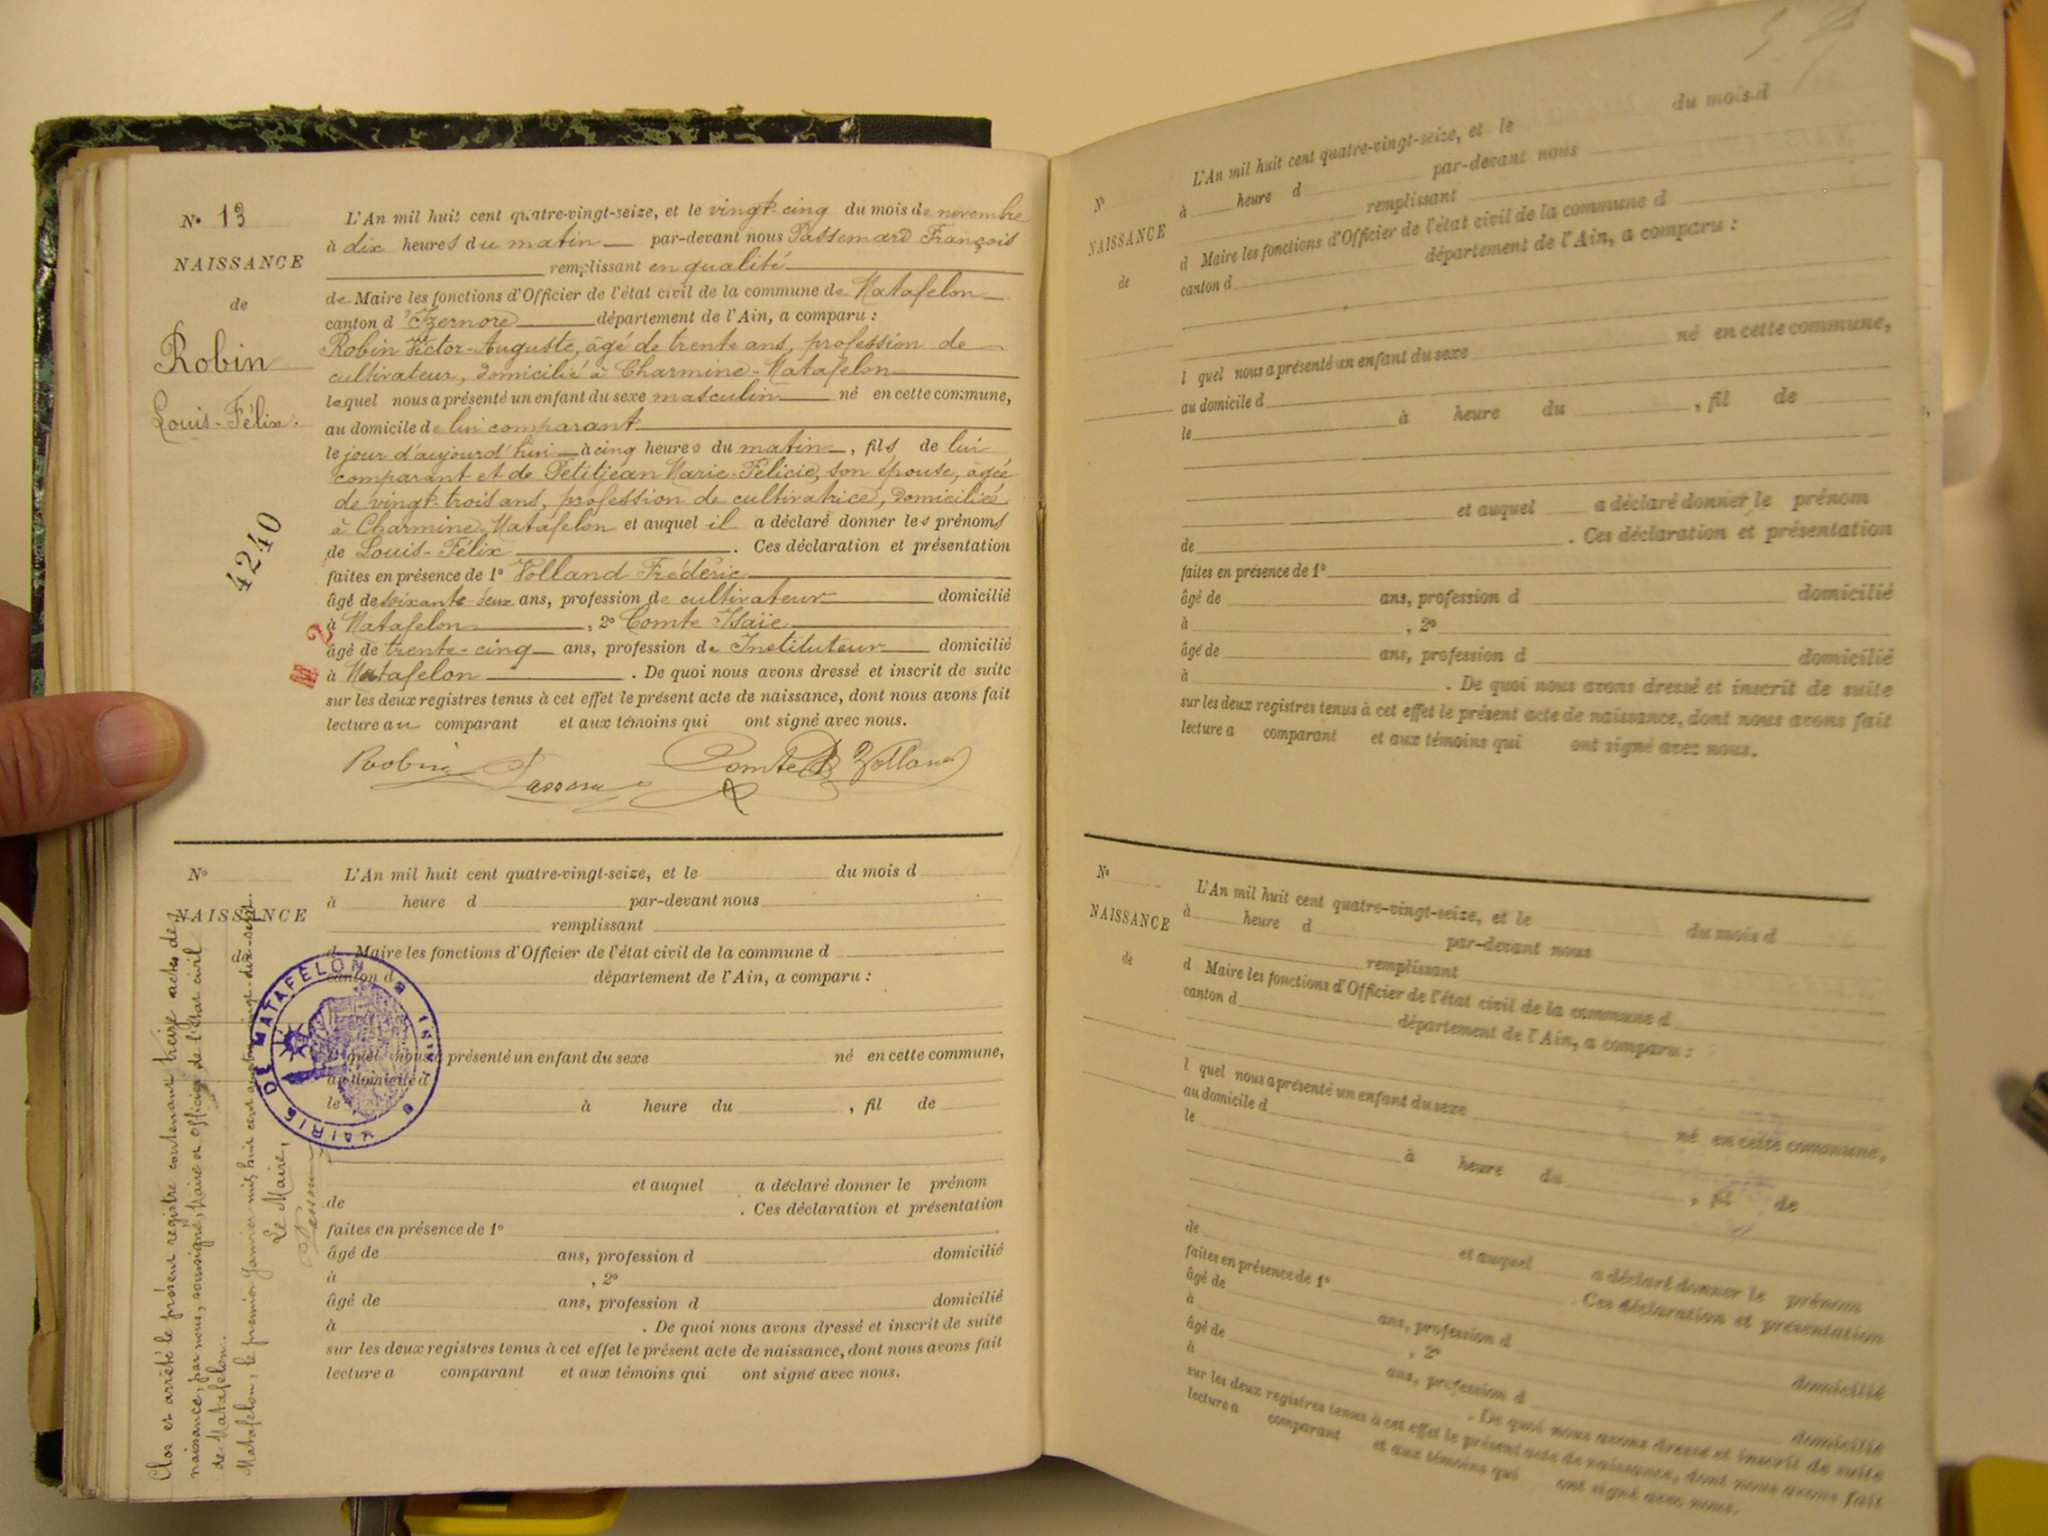 N° 13
NAISSANCE
de
Robin
Louis-Félix.
4240
L'An mil huit cent quatre-vingt-seize, et le vingt-cinq du mois de novembre
à dix heures du matin par-devant nous Passemard François
remplissant en qualité
de Maire les fonctions d'Officier de l'état civil de la commune de Matafelon
canton d'Izernore département de l'Ain, a comparu :
Robin Victor-Auguste, âgé de trente ans, profession de
cultivateur, domicilié à Charmine-Matafelon
lequel nous a présenté un enfant du sexe masculin né en cette commune,
au domicile de lui comparant
le jour d'aujourd'hui à cinq heures du matin, fils de lui
comparant et de Petitjean Marie-Félicie, son épouse, âgée
de vingt-trois ans, profession de cultivatrice, domiciliés
à Charmine-Matafelon et auquel il a déclaré donner les prénoms
de Louis-Félix. Ces déclaration et présentation
faites en présence de 1° Volland Frédéric
âgé de soixante-deux ans, profession de cultivateur domicilié
à Matafelon, 2° Comte Isaie
âgé de trente-cinq ans, profession de Instituteur domicilié
à Matafelon. De quoi nous avons dressé et inscrit de suite
sur les deux registres tenus à cet effet le présent acte de naissance, dont nous avons fait
lecture au comparant et aux témoins qui ont signé avec nous.
Robin Comte Volland
N°
NAISSANCE
de
L'An mil huit cent quatre-vingt-seize, et le du mois d
à heure d par-devant nous
remplissant
d Maire les fonctions d'Officier de l'état civil de la commune d
canton d département de l'Ain, a comparu :
l quel nous a présenté un enfant du sexe né en cette commune,
au domicile d
le à heure du , fil de
et auquel a déclaré donner le prénom
de . Ces déclaration et présentation
faites en présence de 1°
âgé de ans, profession d domicilié
à , 2°
âgé de ans, profession d domicilié
à . De quoi nous avons dressé et inscrit de suite
sur les deux registres tenus à cet effet le présent acte de naissance, dont nous avons fait
lecture a comparant et aux témoins qui ont signé avec nous.
MAIRIE DE MATAFELON
Clos et arrêté le présent registre contenant treize actes de
naissance, par nous, soussigné, Maire et officier de l'état civil
de Matafelon.
Matafelon, le premier Janvier mil huit cent quatre-vingt-dix-sept.
Le Maire,
N°
NAISSANCE
de
L'An mil huit cent quatre-vingt-seize, et le du mois d
à heure d par-devant nous
remplissant
d Maire les fonctions d'Officier de l'état civil de la commune d
canton d département de l'Ain, a comparu :
l quel nous a présenté un enfant du sexe né en cette commune,
au domicile d
le à heure du , fil de
et auquel a déclaré donner le prénom
de . Ces déclaration et présentation
faites en présence de 1°
âgé de ans, profession d domicilié
à , 2°
âgé de ans, profession d domicilié
à . De quoi nous avons dressé et inscrit de suite
sur les deux registres tenus à cet effet le présent acte de naissance, dont nous avons fait
lecture a comparant et aux témoins qui ont signé avec nous.
N°
NAISSANCE
de
L'An mil huit cent quatre-vingt-seize, et le du mois d
à heure d par-devant nous
remplissant
d Maire les fonctions d'Officier de l'état civil de la commune d
canton d département de l'Ain, a comparu :
l quel nous a présenté un enfant du sexe né en cette commune,
au domicile d
le à heure du , fil de
et auquel a déclaré donner le prénom
de . Ces déclaration et présentation
faites en présence de 1°
âgé de ans, profession d domicilié
à , 2°
âgé de ans, profession d domicilié
à . De quoi nous avons dressé et inscrit de suite
sur les deux registres tenus à cet effet le présent acte de naissance, dont nous avons fait
lecture a comparant et aux témoins qui ont signé avec nous.